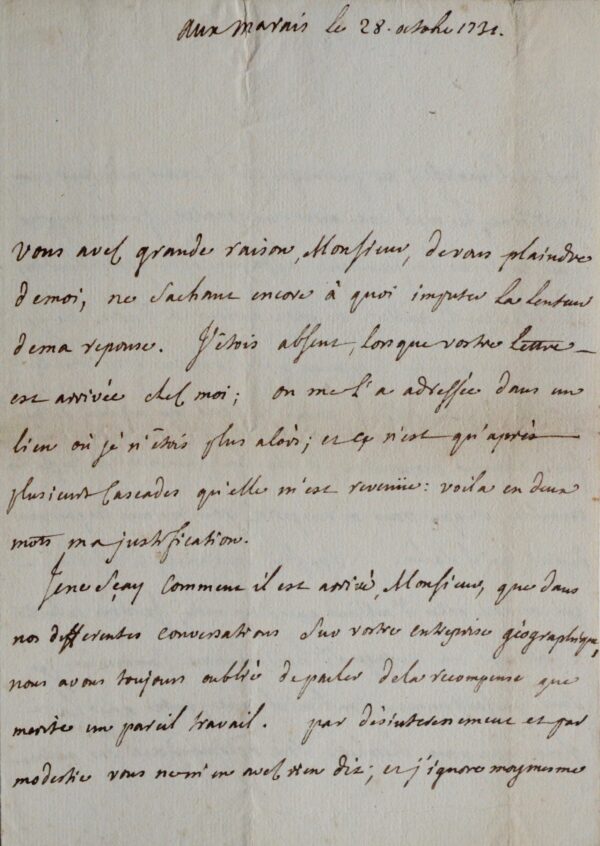 aux marais le 28. octobre 1731.
Vous avés grande raison, Monsieur, de vous plaindre
demoi, ne sachant encore à quoi imputer la lenteur
dema reponse. J'étois absent, lorsque vostre lettre
est arrivée chés moi; on me l'a adressée dans un
lieu où je n'étois plus alors; et ce n'est qu'après
plusieurs cascades qu'elle m'est revenüe: voila en deux
mots ma justification.
Jene scay comment il est arrivé, Monsieur, que dans
nos differentes conversations sur vostre entreprise géographique,
nous avons toujours oublié deparler dela recompense que
merite un pareil travail. par désinteressement et par
modestie vous nem'en avés rien dit; et j'ignore moymesme